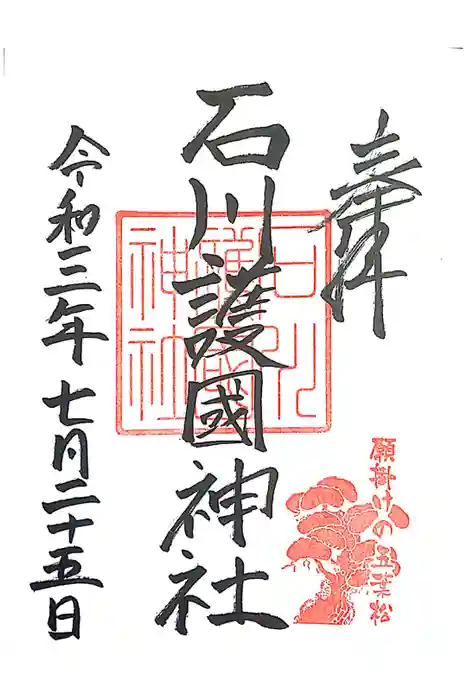 奉拝
石川護國神社
石川護國神社
令和三年七月二十五日
願掛けの五葉松